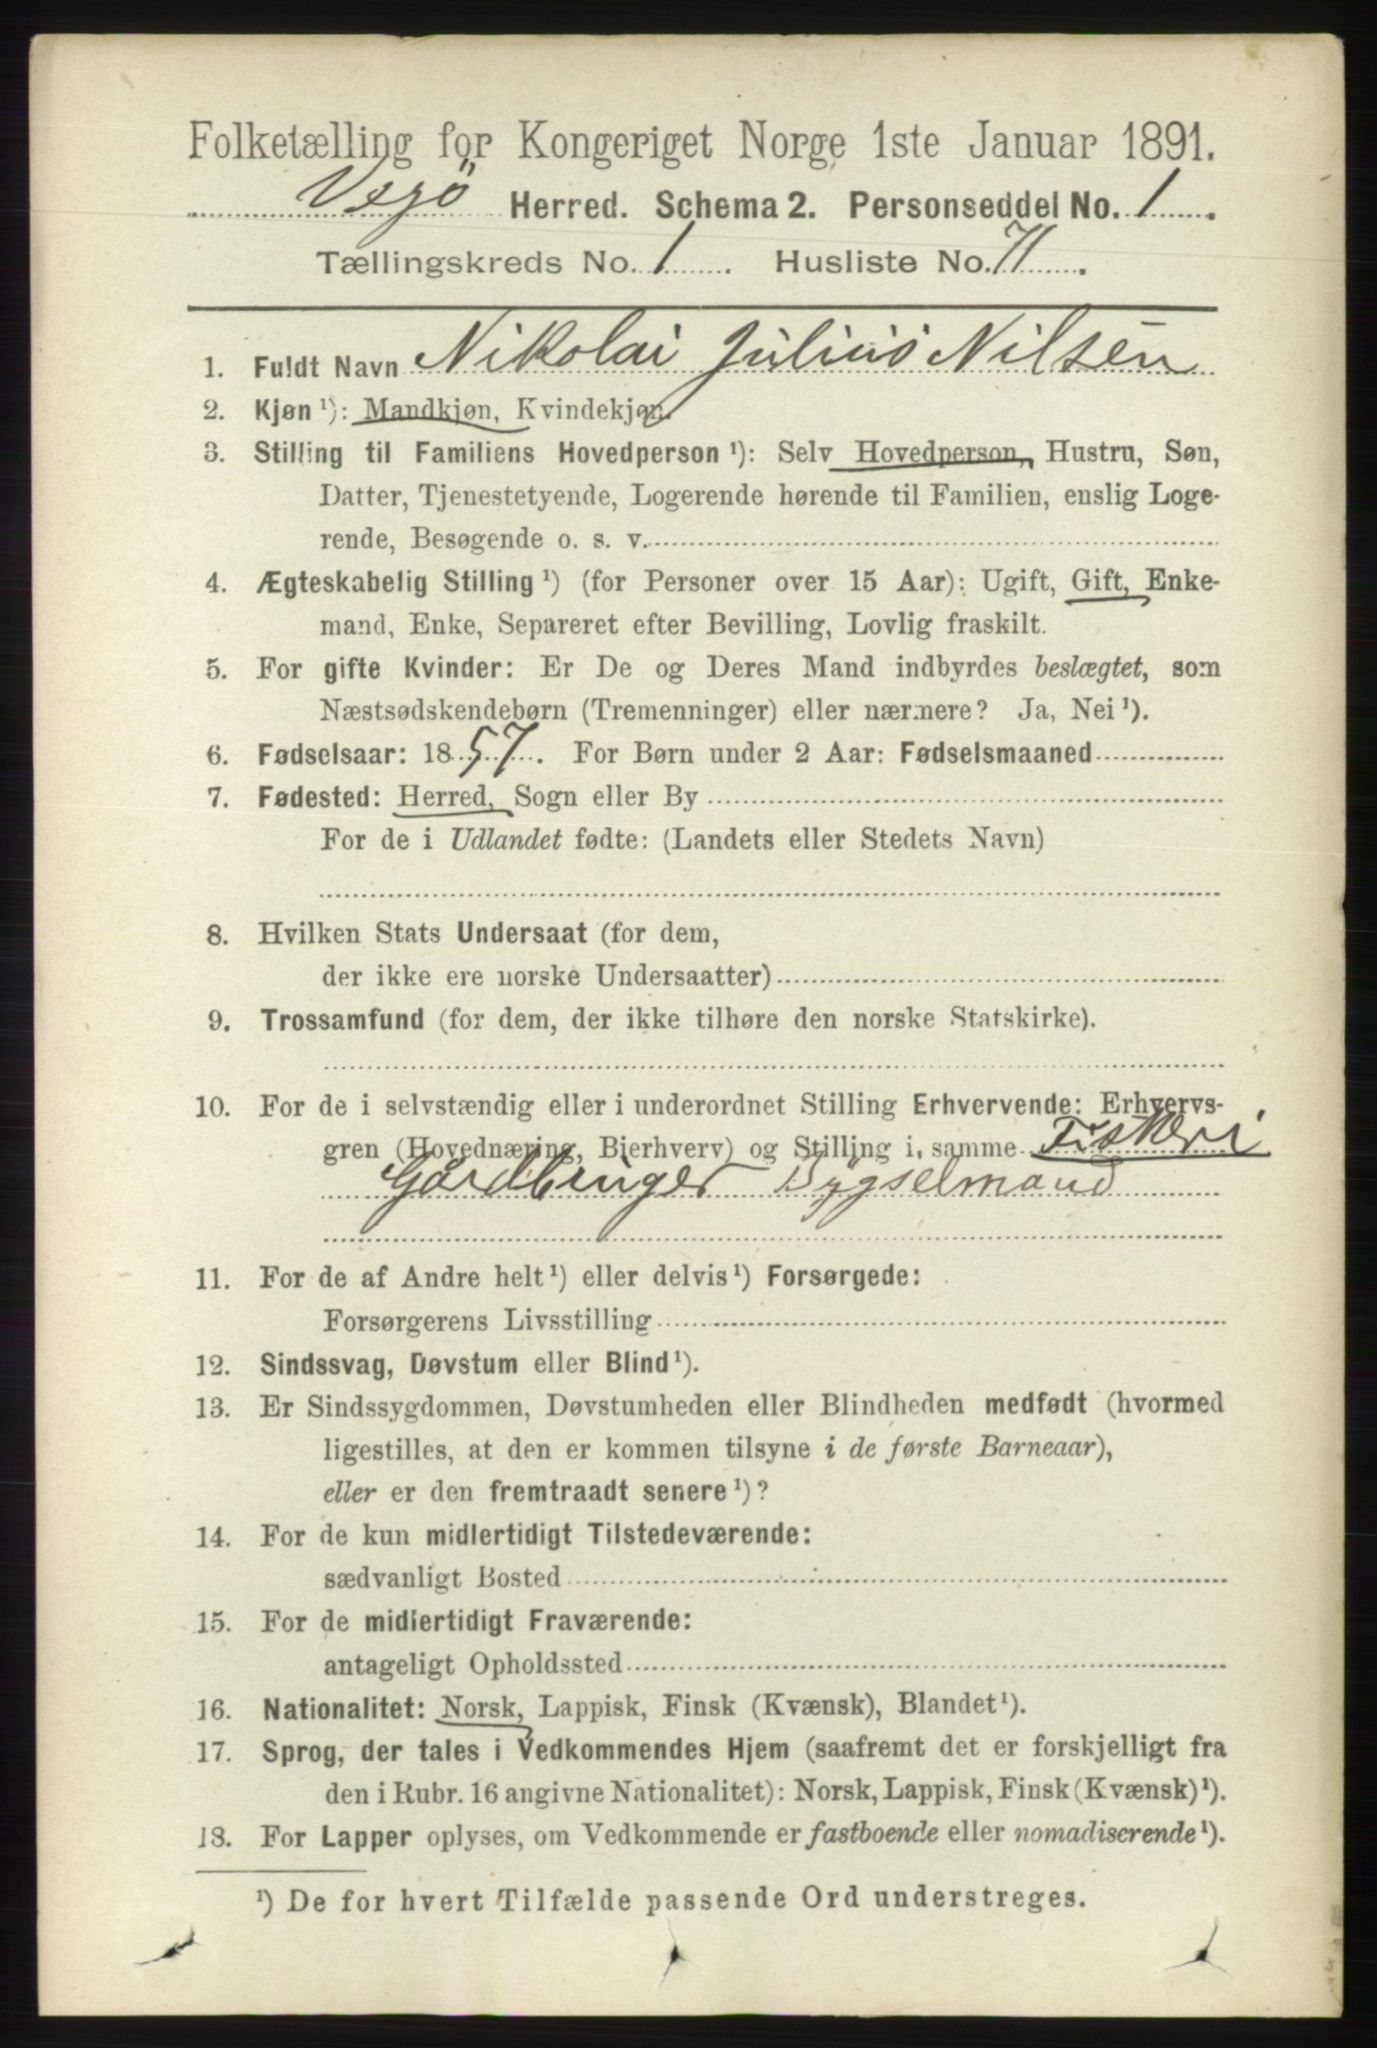 Folketælling for Kongeriget Norge 1ste Januar 1891.
Vegø Herred. Schema 2. Personseddel No. 1.
Tællingskreds No. 1. Husliste No. 71.
1. Fuldt Navn Nikolai Julius Nilsen
2. Kjøn ¹): Mandkjøn, Kvindekjøn.
3. Stilling til Familiens Hovedperson ¹): Selv Hovedperson, Hustru, Søn,
Datter, Tjenestetyende, Logerende hørende til Familien, enslig Loge-
rende, Besøgende o. s. v.
4. Ægteskabelig Stilling ¹) (for Personer over 15 Aar): Ugift, Gift, Enke-
mand, Enke, Separeret efter Bevilling, Lovlig fraskilt.
5. For gifte Kvinder: Er De og Deres Mand indbyrdes beslægtet, som
Næstsødskendebørn (Tremenninger) eller nærmere? Ja, Nei ¹).
6. Fødselsaar: 1857. For Børn under 2 Aar: Fødselsmaaned
7. Fødested: Herred, Sogn eller By
For de i Udlandet fødte: (Landets eller Stedets Navn)
8. Hvilken Stats Undersaat (for dem,
der ikke ere norske Undersaatter)
9. Trossamfund (for dem, der ikke tilhøre den norske Statskirke).
10. For de i selvstændig eller i underordnet Stilling Erhvervende: Erhvervs-
gren (Hovednæring, Bierhverv) og Stilling i samme Fiskeri
Gårdbruger Bygselmand
11. For de af Andre helt ¹) eller delvis ¹) Forsørgede:
Forsørgerens Livsstilling
12. Sindssvag, Døvstum eller Blind ¹).
13. Er Sindssygdommen, Døvstumheden eller Blindheden medfødt (hvormed
ligestilles, at den er kommen tilsyne i de første Barneaar),
eller er den fremtraadt senere ¹)?
14. For de kun midlertidigt Tilstedeværende:
sædvanligt Bosted
15. For de midlertidigt Fraværende:
antageligt Opholdssted
16. Nationalitet: Norsk, Lappisk, Finsk (Kvænsk), Blandet ¹).
17. Sprog, der tales i Vedkommendes Hjem (saafremt det er forskjelligt fra
den i Rubr. 16 angivne Nationalitet): Norsk, Lappisk, Finsk (Kvænsk) ¹).
18. For Lapper oplyses, om Vedkommende er fastboende eller nomadiserende ¹).
¹) De for hvert Tilfælde passende Ord understreges.